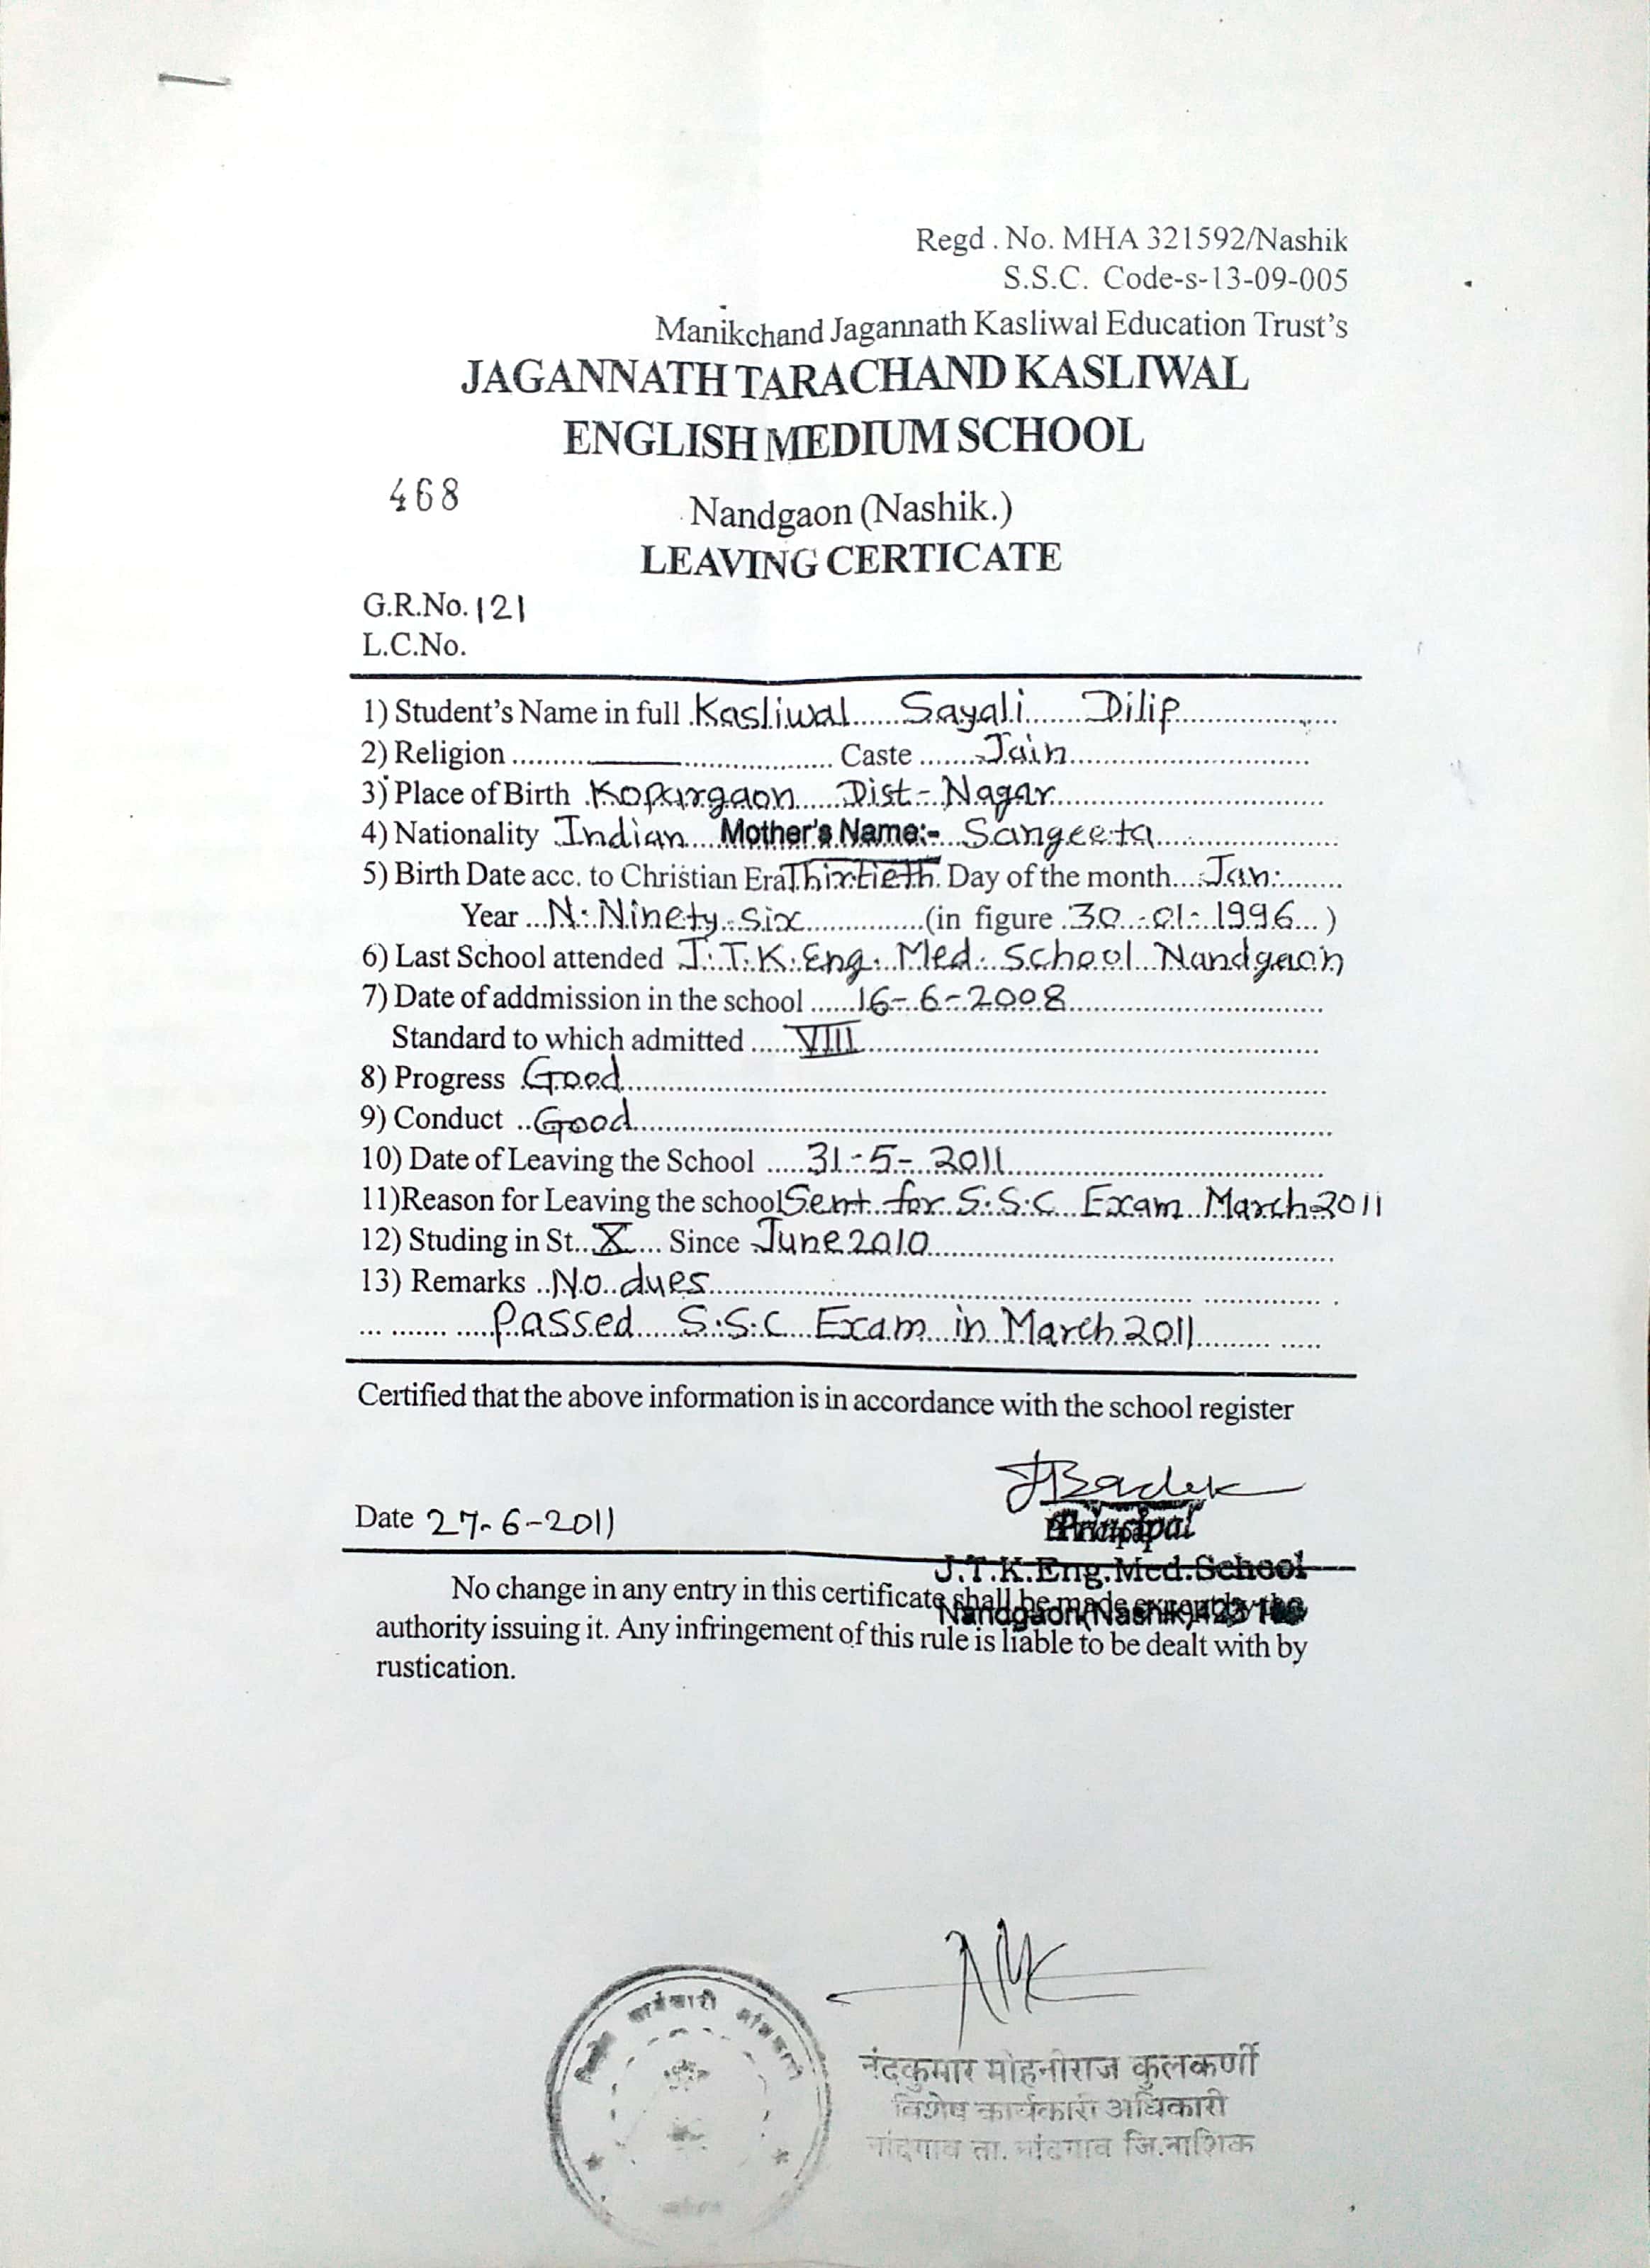 Regd . No. MHA 321592/Nashik
S.S.C. Code-s-13-09-005
Manikchand Jagannath Kasliwal Education Trust's
JAGANNATH TARACHAND KASLIWAL
ENGLISH MEDIUM SCHOOL
468
Nandgaon (Nashik.)
LEAVING CERTICATE
G.R.No. 121
L.C.No.
1) Student's Name in full Kasliwal Sayali Dilip
2) Religion ——— Caste Jain
3) Place of Birth Kopargaon Dist- Nagar
4) Nationality Indian Mother's Name:- Sangeeta
5) Birth Date acc. to Christian Era Thirtieth Day of the month Jan:
Year N. Ninety six (in figure 30-01-1996 )
6) Last School attended J.T.K. Eng. Med. School Nandgaon
7) Date of addmission in the school 16-6-2008
Standard to which admitted VIII
8) Progress Good
9) Conduct Good
10) Date of Leaving the School 31-5-2011
11)Reason for Leaving the school Sent for S.S.C Exam March-2011
12) Studing in St. X Since June 2010
13) Remarks No dues
Passed S.S.C Exam in March 2011
Certified that the above information is in accordance with the school register
Date 27-6-2011
Principal
J.T.K.Eng.Med.School
Nandgaon(Nashik)
No change in any entry in this certificate shall be made except by the
authority issuing it. Any infringement of this rule is liable to be dealt with by
rustication.
कार्यकारी
नंदकुमार मोहनीराज कुलकर्णी
विशेष कार्यकारी अधिकारी
नांदगाव ता. नांदगाव जि.नाशिक